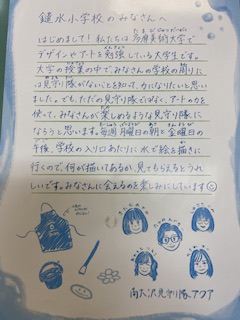 鑓水小学校のみなさんへ
はじめまして！私たちは多摩美術大学で
デザインやアートを勉強している大学生です。
大学の授業の中で、みなさんの学校の周りに
は見守り隊がないことを知って、力になりたいと思い
ました。でも、ただの見守り隊ではなく、アートの力を
使って、みなさんが楽しめるような見守り隊に
なろうと思います。毎週月曜日の朝と金曜日の
午後、学校の入り口あたりに水で絵を描きに
行くので、何が描いてあるか、見てもらえるとうれ
しいです。みなさんに会えるのを楽しみにしています
南大沢見守り隊アクア